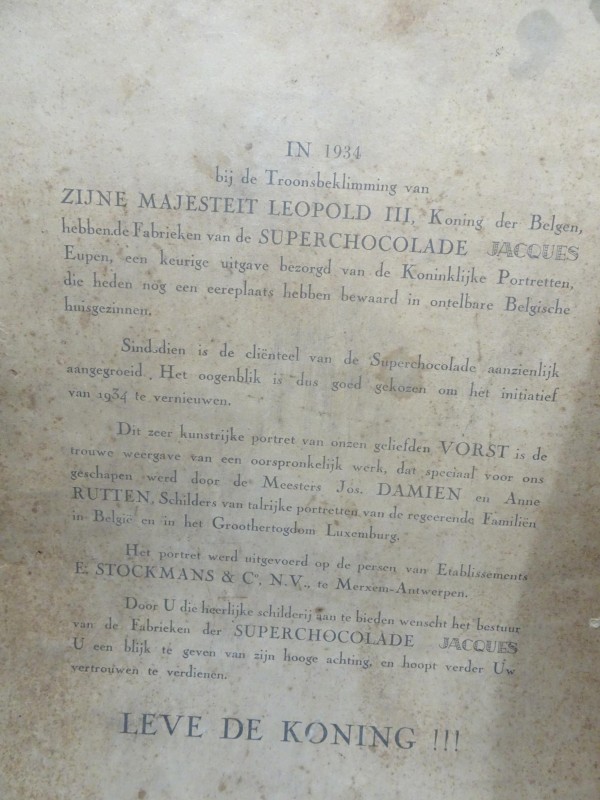 IN 1934
bij de Troonsbeklimming van
ZIJNE MAJESTEIT LEOPOLD III, Koning der Belgen,
hebben de Fabrieken van de SUPERCHOCOLADE JACQUES
Eupen, een keurige uitgave bezorgd van de Koninklijke Portretten,
die heden nog een eereplaats hebben bewaard in ontelbare Belgische
huisgezinnen.
Sindsdien is de cliënteel van de Superchocolade aanzienlijk
aangegroeid. Het oogenblik is dus goed gekozen om het initiatief
van 1934 te vernieuwen.
Dit zeer kunstrijke portret van onzen geliefden VORST is de
trouwe weergave van een oorspronkelijk werk, dat speciaal voor ons
geschapen werd door de Meesters Jos. DAMIEN en Anne
RUTTEN, Schilders van talrijke portretten van de regeerende Familiën
in België en in het Groothertogdom Luxemburg.
Het portret werd uitgevoerd op de persen van Etablissements
E. STOCKMANS & Co, N.V., te Merxem-Antwerpen.
Door U die heerlijke schilderij aan te bieden wenscht het bestuur
van de Fabrieken der SUPERCHOCOLADE JACQUES
U een blijk te geven van zijn hooge achting, en hoopt verder Uw
vertrouwen te verdienen.
LEVE DE KONING !!!